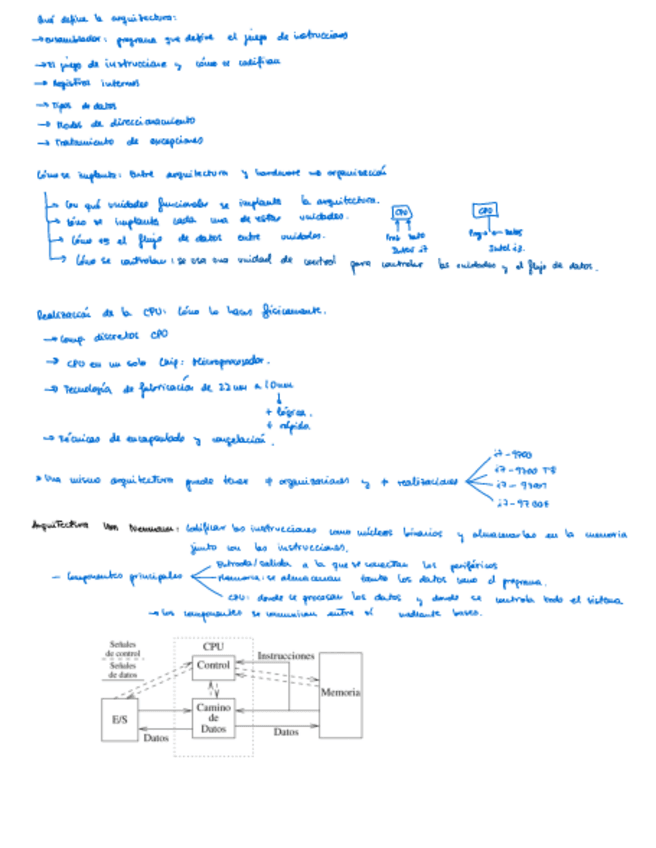 Qué define la arquitectura:
→ ensamblador: programa que define el juego de instrucciones
→ El juego de instrucciones y cómo se codifican
→ Registros internos
→ Tipos de datos
→ Modos de direccionamiento
→ Tratamiento de excepciones
Cómo se implanta: Entre arquitectura y hardware organización
→ Con qué unidades funcionales se implanta la arquitectura.
→ Cómo se implanta cada una de estas unidades.
→ Cómo es el flujo de datos entre unidades.
→ Cómo se controlan: se usa una unidad de control para controlar las unidades y el flujo de datos.
CPU CPU
Intel i7 Intel i3.
Realización de la CPU: Cómo lo haces físicamente.
→ Comp discretos CPU
→ CPU en un solo chip: Microprocesador.
→ Tecnología de fabricación de 22nm a 10nm
+ lógica.
+ rápido.
→ Técnicas de encapsulado y
i7-9700
Una misma arquitectura puede tener ≠ organizaciones y ≠ realizaciones
Arquitectura Von Neumann: Codificar las instrucciones como números binarios y almacenarlas en la memoria
junto con las instrucciones.
Entrada/salida a la que se conectan los periféricos
- Componentes principales
Memoria: se almacenan tanto los datos como el programa.
CPU: donde se procesan los datos y donde se controla todo el sistema
→ Los componentes se comunican entre sí mediante buses.
Señales
de control
Señales
de datos
CPU
Control
Instrucciones
Memoria
E/S
Camino
de
Datos
Datos
Datos